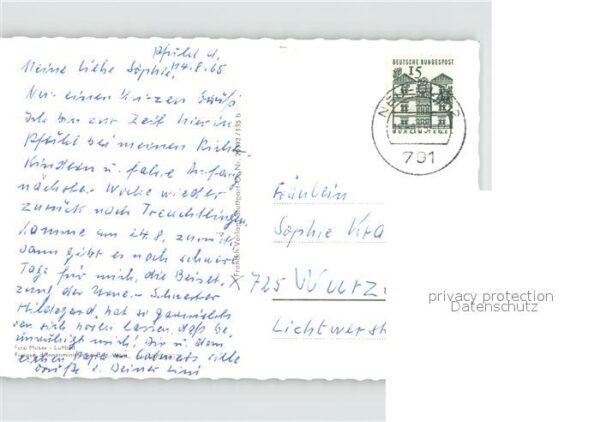 Pfuhl d.
Meine liebe Sophie, 14.8.65
Nur einen kurzen Gruß
Ich bin zur Zeit hier in
Pfuhl bei meinen
Kindern u. fahre Anfang
nächster Woche wieder
zurück nach Treuchtlingen
komme am 24.8. zurück
dann gibt es noch schwere
Tage für mich, die Beiset-
zung der Urne. Schwester
Hildegard, hat so garnichts
von sich hören lassen, daß be-
unruhigt mich! Dir u. dem
lieben Papa alle
Grüße v. Deiner
DEUTSCHE BUNDESPOST
15
791
Fräulein
Sophie
X 725 Wurz
Lichtwerst
privacy protection
Datenschutz